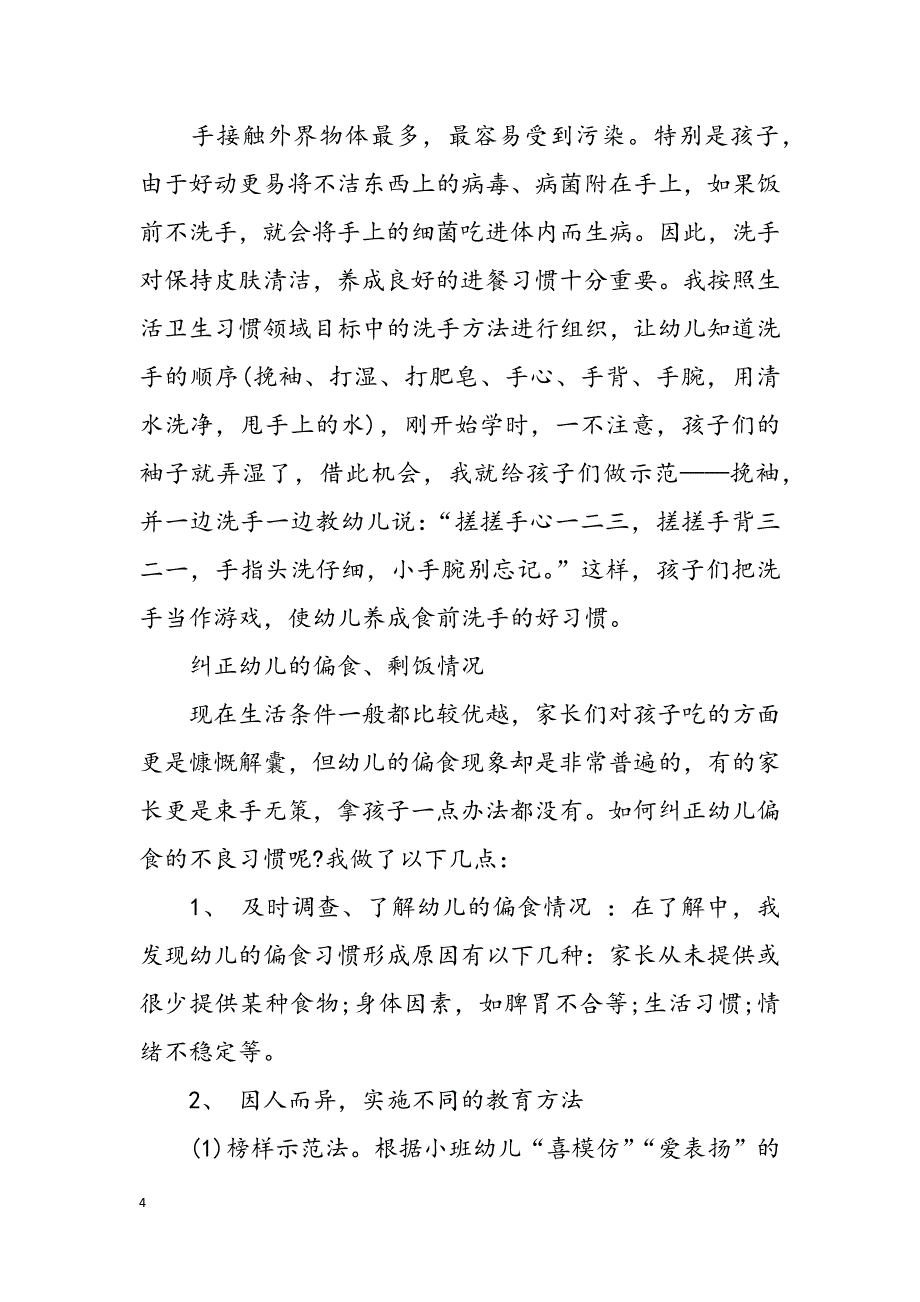 手接触外界物体最多，最容易受到污染。特别是孩子，
由于好动更易将不洁东西上的病毒、病菌附在手上，如果饭
前不洗手，就会将手上的细菌吃进体内而生病。因此，洗手
对保持皮肤清洁，养成良好的进餐习惯十分重要。我按照生
活卫生习惯领域目标中的洗手方法进行组织，让幼儿知道洗
手的顺序(挽袖、打湿、打肥皂、手心、手背、手腕，用清
水洗净，甩手上的水)，刚开始学时，一不注意，孩子们的
袖子就弄湿了，借此机会，我就给孩子们做示范———挽袖，
并一边洗手一边教幼儿说：“搓搓手心一二三，搓搓手背三
二一，手指头洗仔细，小手腕别忘记。”这样，孩子们把洗
手当作游戏，使幼儿养成食前洗手的好习惯。
纠正幼儿的偏食、剩饭情况
现在生活条件一般都比较优越，家长们对孩子吃的方面
更是慷慨解囊，但幼儿的偏食现象却是非常普遍的，有的家
长更是束手无策，拿孩子一点办法都没有。如何纠正幼儿偏
食的不良习惯呢?我做了以下几点：
1、 及时调查、了解幼儿的偏食情况 ：在了解中，我
发现幼儿的偏食习惯形成原因有以下几种：家长从未提供或
很少提供某种食物;身体因素，如脾胃不合等;生活习惯;情
绪不稳定等。
2、 因人而异，实施不同的教育方法
(1)榜样示范法。根据小班幼儿“喜模仿”“爱表扬”的
4